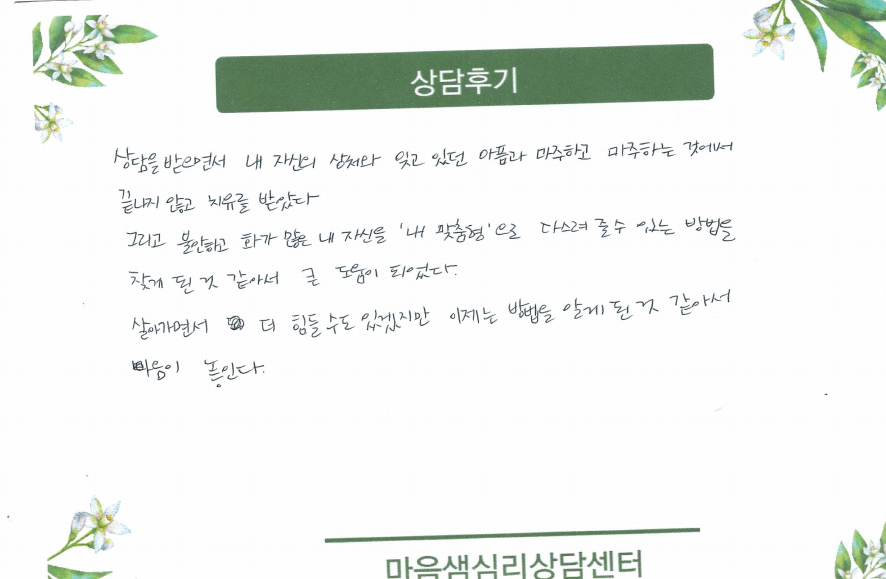 상담후기
상담을 받으면서 내 자신의 상처와 잊고 있던 아픔과 마주하고 마주하는 것에서
끝나지 않고 치유를 받았다
그리고 불안하고 화가 많은 내 자신을 '내 맞춤형'으로 다스려 줄 수 있는 방법을
찾게 된 것 같아서 큰 도움이 되었다.
살아가면서 더 힘들 수도 있겠지만 이제는 방법을 알게 된 것 같아서
마음이 놓인다.
마음샘심리상담센터